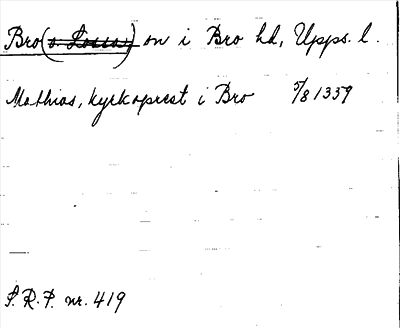 Bro (o. Lossa) sn i Bro hd, Upps. l.
Mathias, kyrkoprest i Bro 5/8 1339
S.R.P. nr. 419